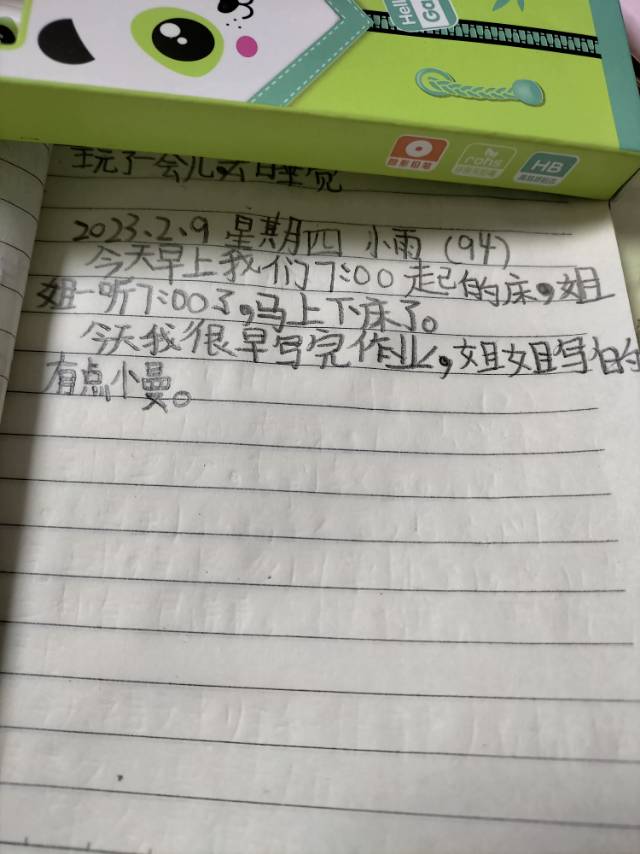 Hello
Ga
HB
rohs
玩了一会儿,去睡觉
2023、2、9 星期四 小雨 (94)
今天早上我们7:00起的床,姐
姐一听7:00了,马上下床了。
今天我很早写完作业,姐姐写的
有点小曼。